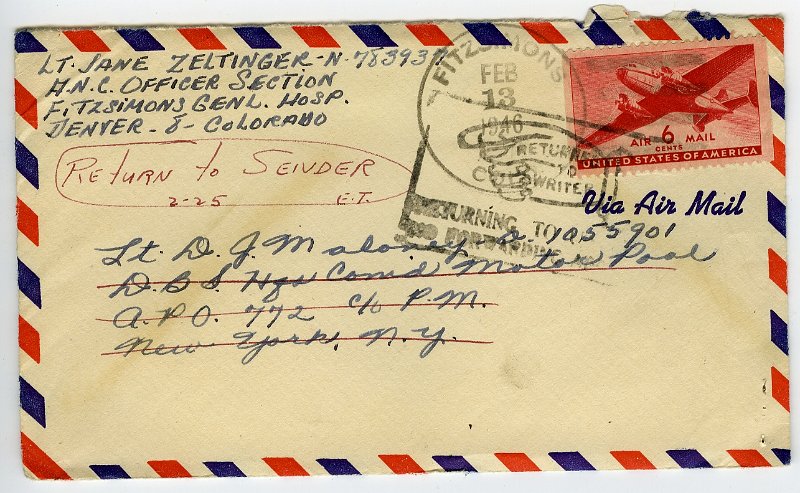 LT. JANE ZELTINGER-N-783937
A.N.C. OFFICER SECTION
FITZSIMONS GENL. HOSP.
DENVER-8-COLORADO
FITZSIMONS
FEB
13
1946
AIR 6 MAIL
CENTS
UNITED STATES OF AMERICA
RETURNED
TO
WRITER
Return to Sender
2-25 E.T.
Via Air Mail
RETURNING TO
FORWARDING
Lt. D. J. Maloney
D.B.S. Hqs Com'd Motor Pool
A.P.O. 772 c/o P.M.
New York, N.Y.